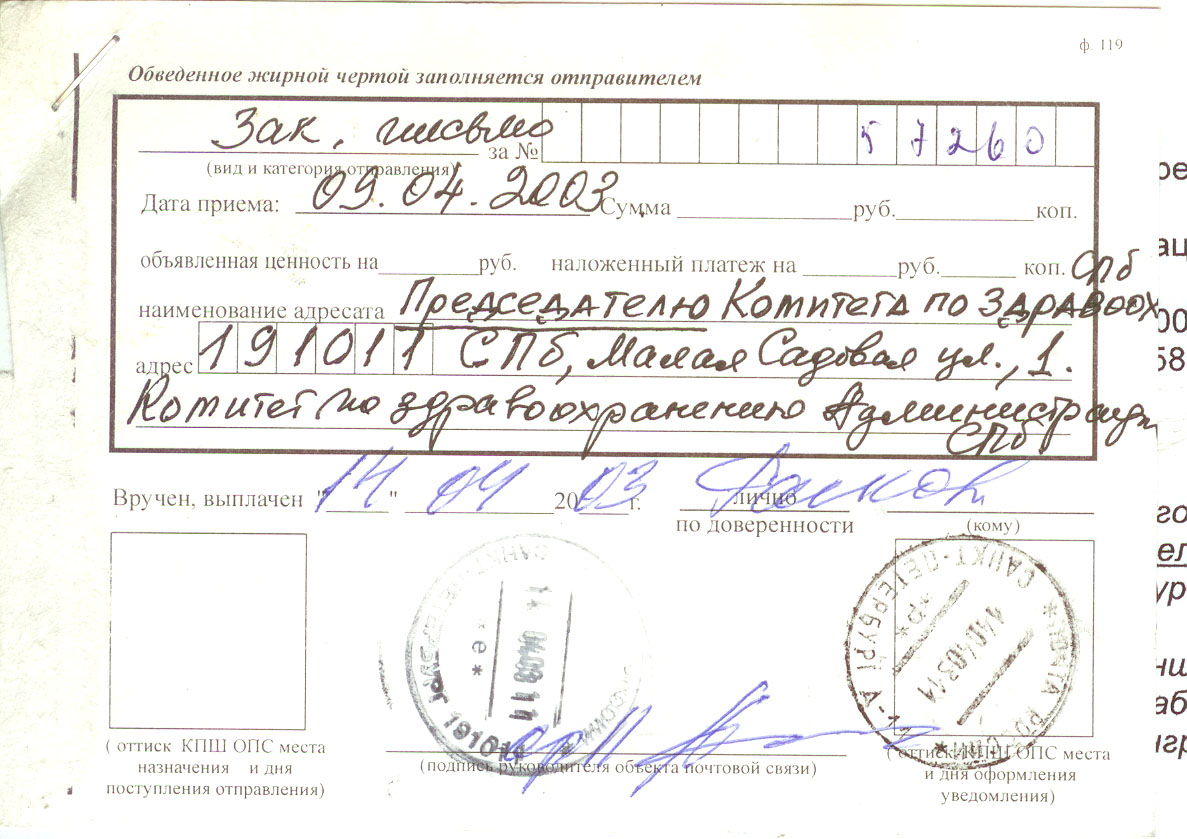 ф. 119
Обведенное жирной чертой заполняется отправителем
Зак. письмо за № 57260
(вид и категория отправления)
Дата приема: 09.04.2003 Сумма руб. коп.
объявленная ценность на руб. наложенный платеж на руб. коп. СПб
наименование адресата Председателю Комитета по Здравоох
адрес 191011 СПб, Малая Садовая ул., 1.
Комитет по здравоохранению Администрац
СПб
Вручен, выплачен "14" 04 2003 г. лично
по доверенности (кому)
САНКТ-ПЕТЕРБУРГ 191011
14 04 03 11
* е *
САНКТ-ПЕТЕРБУРГ
* Р *
14 04 03 11
( оттиск КПШ ОПС места
назначения и дня
поступления отправления)
(подпись руководителя объекта почтовой связи)
( оттиск КПШ ОПС места
и дня оформления
уведомления)